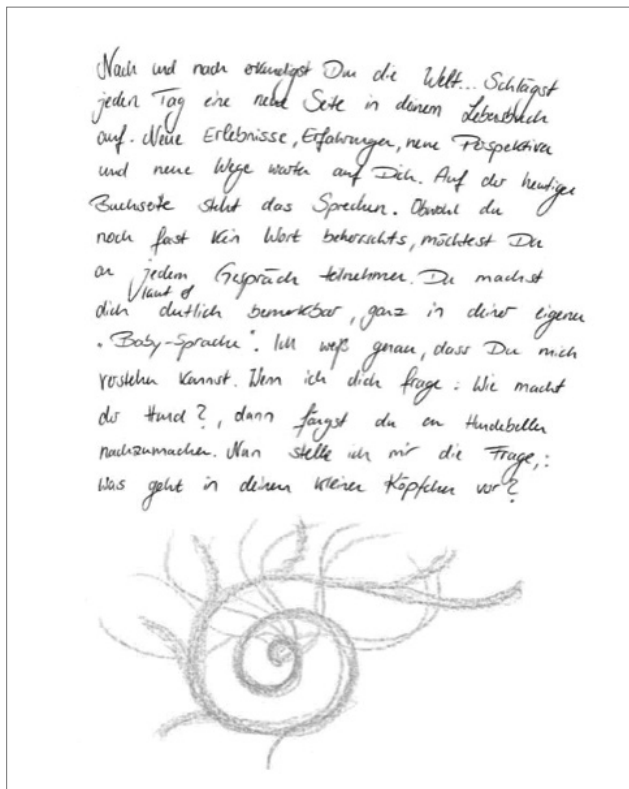 Nach und nach erkundigst Du die Welt... Schlägst
jeden Tag eine neue Seite in deinem Lebensbuch
auf. Neue Erlebnisse, Erfahrungen, neue Perspektiven
und neue Wege warten auf Dich. Auf der heutigen
Buchseite steht das Sprechen. Obwohl du
noch fast kein Wort beherrschts, möchtest Du
an jedem Gespräch teilnehmen. Du machst
laut &
dich deutlich bemerkbar, ganz in deiner eigenen
"Baby-Sprache". Ich weiß genau, dass Du mich
verstehen kannst. Wenn ich dich frage: Wie macht
der Hund?, dann fängst du an Hundebellen
nachzumachen. Nun stelle ich mir die Frage,:
Was geht in deinem kleinen Köpfchen vor?